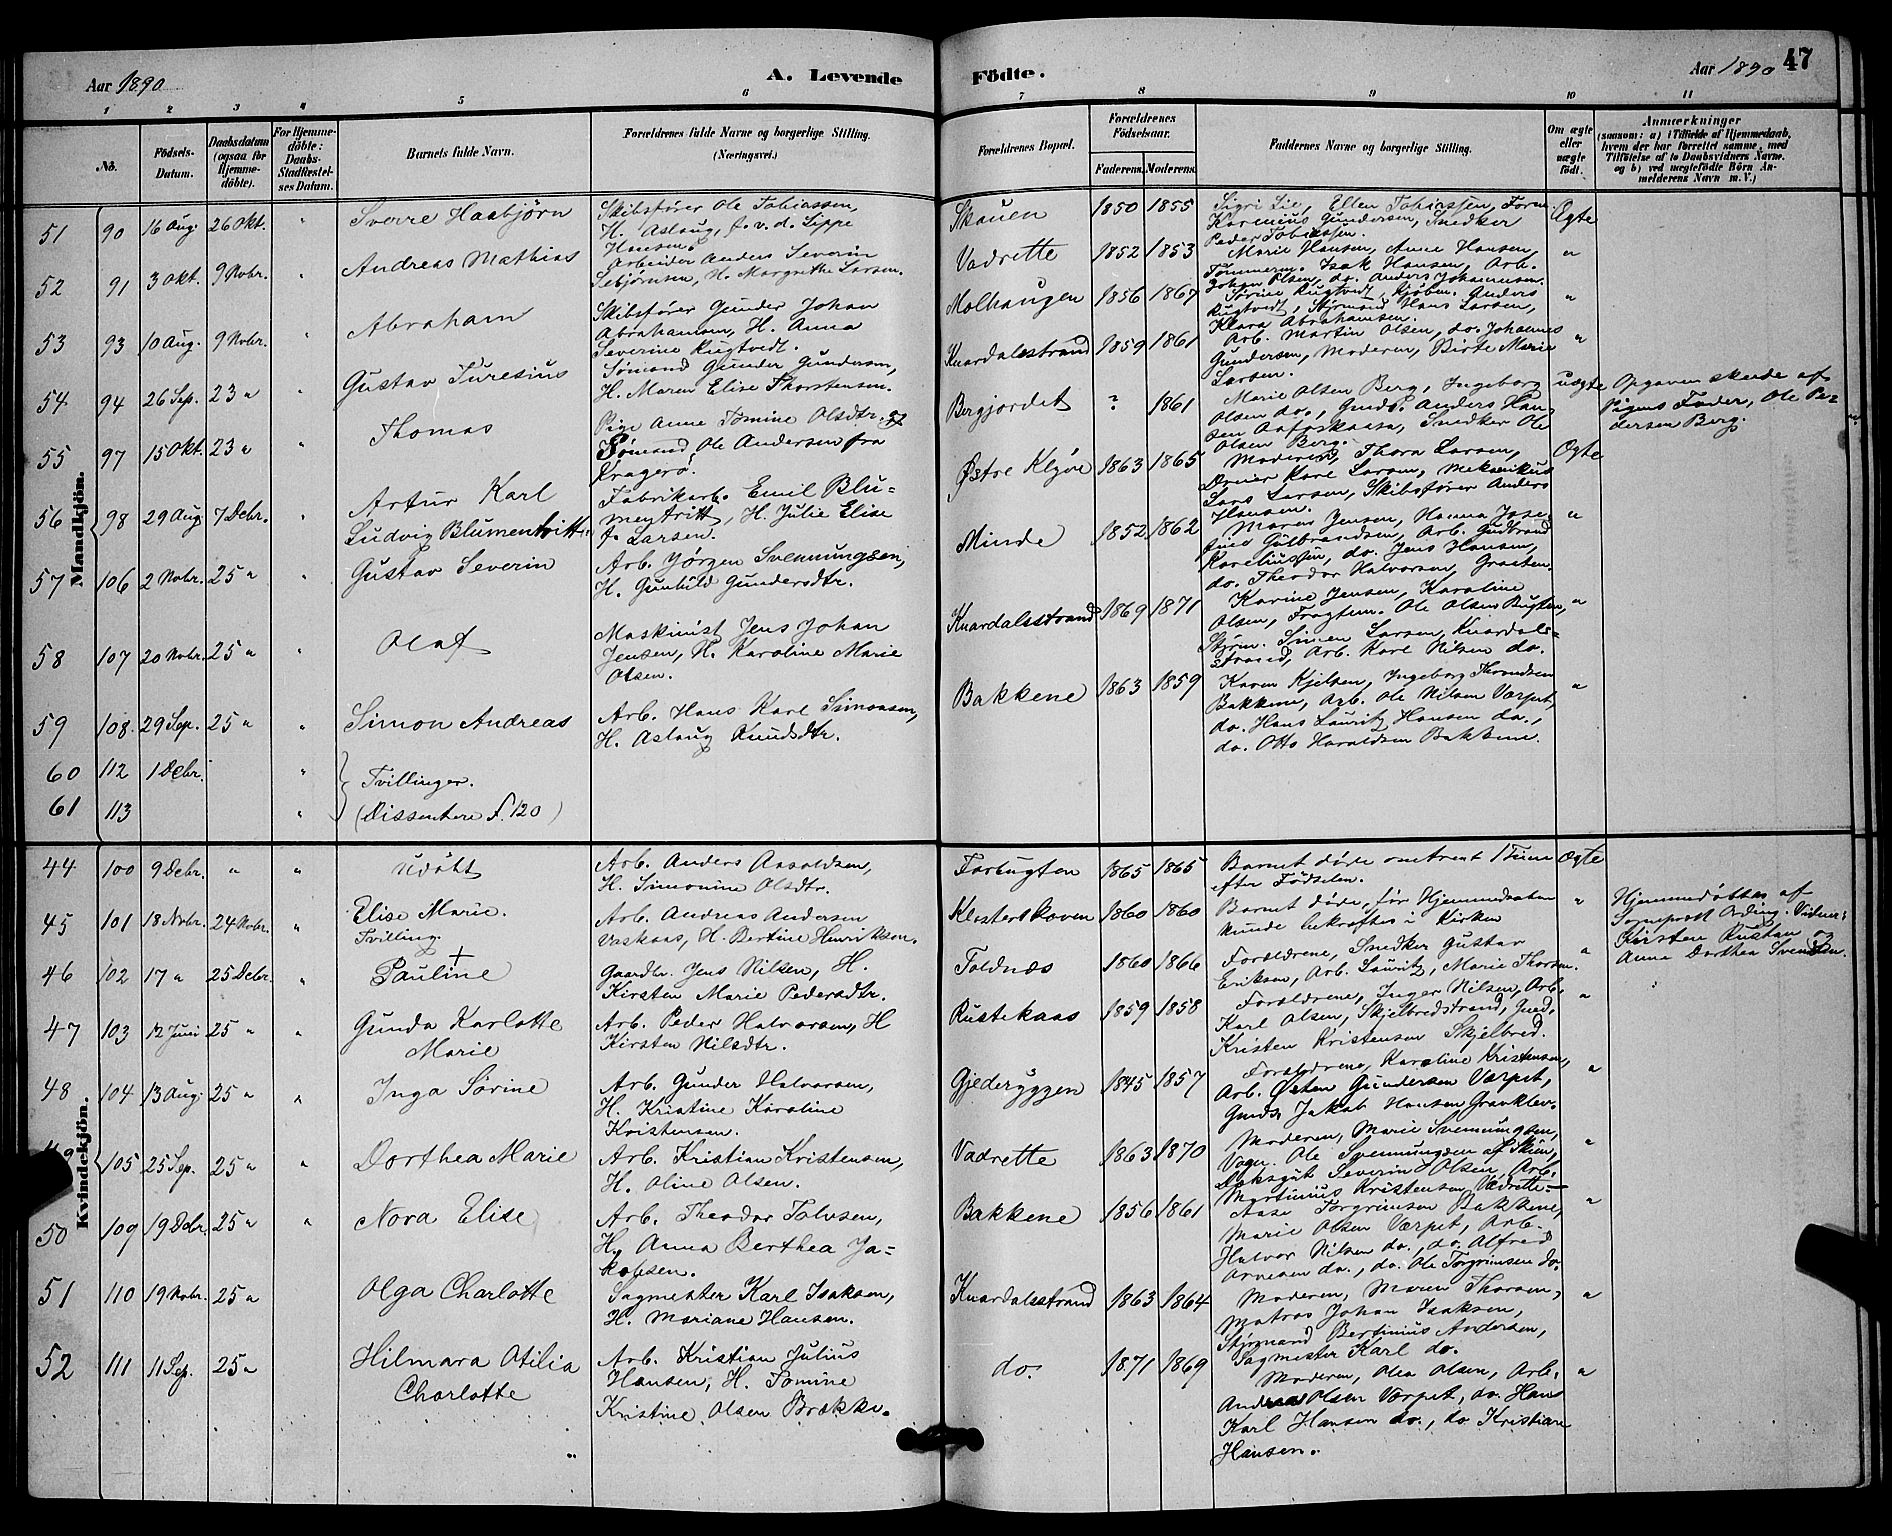 Aar 1890 A. Levende Födte. Aar 1890 47
1 2 3 4 5 6 7 8 9 10 11
No. Födsels-Datum. Daabsdatum (ogsaa for Hjemmedöbte). For Hjemmedöbte: Daabs-Stadfæstelses Datum. Barnets fulde Navn. Forældrenes fulde Navne og borgerlige Stilling. (Næringsvei.) Forældrenes Bopæl. Forældrenes Födselsaar. Faderens. Moderens. Faddernes Navne og borgerlige Stilling. Om ægte eller uægte födt. Anmærkninger (saasom: a) i Tilfælde af Hjemmedaab, hvem der har forrettet samme, med Tilföielse af to Daabsvidners Navne. og b) ved uægtefödte Börn Anmelderens Navn m. V.)
Mandkjön.
51 90 16 Aug. 26 Okt. " Sverre Haabjörn
Skibsfører Ole Tobiassen,
H. Aslaug, f. v. d. Lippe
Hansen.
Skauen 1850 1855
Sigri Lie, Ellen Tobiassen, Form.
Karenius Gundersen, Snedker
Peder Tobiassen.
Ægte
52 91 3 Okt. 9 Novbr. " Andreas Mathias
Arbeider Anders Severin
Sebjørnsen, H. Margrethe Larsen.
Vadrette 1852 1853
Marie Hansen, Anne Hansen,
Tømmerm. Isak Hansen, Arb.
Johan Olsen, do. Anders Johannesen.
"
53 93 10 Aug. 9 Novbr. " Abraham
Skibsfører Gunder Johan
Abrahamsen, H. Anna
Severine Rugtvedt.
Molhaugen 1856 1867
Sørine Rugtvedt, Kjøbm. Anders
Rugtvedt, Styrmand Hans Larsen,
Klara Abrahamsen.
"
54 94 26 Sep. 23 " " Gustav Turesius
Sømand Gunder Gundersen,
H. Maren Elise Thorstensen.
Knardalsstrand 1859 1861
Arb. Martin Olsen, do. Johannes
Gundersen, Moderen, Birte Marie
Larsen.
"
55 97 15 Okt. 23 " " Thomas
Pige Anne Tomine Olsdtr. &
Sømand Ole Andersen fra
Kragerø.
Bergjordet ? 1861
Marie Olsen Berg, Ingeborg
Olsen do., Gmds. Anders Han-
sen Aafoskaasa, Snedker Ole
Olsen Berg.
uægte
Opgaven skede af
Pigens Fader, Ole Pe-
dersen Berg.
56 98 29 Aug. 7 Debr. " Artur Karl
Ludvig Blumentritt.
Fabrikarb. Emil Blu-
mentritt, H. Julie Elise
f. Larsen.
Østre Klyve 1863 1865
Moderen, Thora Larsen,
Dreier Karl Larsen, Mekanikus
Lars Larsen, Skibsfører Anders
Hansen.
Ægte
57 106 2 Novbr. 25 " " Gustav Severin
Arb. Jørgen Svennungsen,
H. Gunhild Gundersdtr.
Minde 1852 1862
Maren Jensen, Hanna Jose-
fine Gulbrandsen, Arb. Gudbrand
Kareliussen, do. Jens Hansen,
do. Theodor Halvorsen, Graaten.
"
58 107 20 Novbr. 25 " " Olaf
Maskinist Jens Johan
Jensen, H. Karoline Marie
Olsen.
Knardalsstrand 1869 1871
Karine Jensen, Karoline
Olsen, Fragtem. Ole Olsen Bugten,
Styrm. Simen Larsen, Knardals-
strand, Arb. Karl Nilsen do.
"
59 108 29 Sep. 25 " " Simon Andreas
Arb. Hans Karl Simonsen,
H. Aslaug Knudsdtr.
Bakkene 1863 1859
Karen Kjelsen, Ingeborg Throndsen
Bakkene, Arb. Ole Nilsen Værpet,
do. Hans Lauritz Hansen do.,
do. Otto Haraldsen Bakkene.
"
60 112 1 Debr. " Tvillinger.
61 113 " (Dissentere f. 120)
Kvindekjön.
44 100 9 Debr. " " Udøbt
Arb. Anders Aasoldsen,
H. Simonine Olsdtr.
Torbugten 1865 1865
Barnet døde omtrent 1 Time
efter Fødselen.
Ægte
45 101 18 Novbr. 24 Novbr. " Elise Marie.
Tvilling.
Arb. Andreas Andersen
Vaskaas, H. Bertine Henriksen.
Klosterskoven 1860 1860
Barnet døde, før Hjemmedaaben
kunde bekræftes i Kirken
"
Hjemmedøbtes af
Sognepræst Arding. Vidner:
Kirsten Rustan og
Anne Dorthea Svendsen.
46 102 17 " 25 Debr. " Pauline +
Gaardbr. Jens Nilsen, H.
Kirsten Marie Pedersdtr.
Toldnæs 1860 1866
Forældrene, Snedker Gustav
Eriksen, Arb. Lauritz, Marie Thorsen.
"
47 103 12 Juni 25 " " Gunda Karlotte
Marie
Arb. Peder Halvorsen, H
Kirsten Nilsdtr.
Rustekaas 1859 1858
Forældrene, Inger Nilsen, Arb.
Karl Olsen, Skjelbredstrand, Gmd.
Kristen Kristensen Skjelbred.
"
48 104 13 Aug. 25 " " Inga Sørine
Arb. Gunder Halvorsen,
H. Kristine Karoline
Kristensen.
Gjederyggen 1845 1857
Forældrene, Karoline Kristensen,
Arb. Østen Gundersen Værpet,
Gmds. Jakob Hansen Graaklev.
"
105 25 Sep. 25 " " Dorthea Marie
Arb. Kristian Kristensen,
H. Oline Olsen.
Vadrette 1863 1870
Moderen, Marie Svennungsen,
Vogn. Ole Svennungsen af Skien,
Daksgut Severin Olsen, Arb.
Martinius Kristensen Vadrette.
"
50 109 19 Debr. 25 " " Nora Elise
Arb. Theodor Tolvsen,
H. Anna Berthea Ja-
kobsen.
Bakkene 1856 1861
Aase Torgrimsen Bakkene,
Marie Olsen Værpet, Arb.
Halvor Nilsen do., do. Alfred
Arnesen do., do. Ole Torgrimsen do.
"
51 110 19 Novbr. 25 " Olga Charlotte
Sagmester Karl Isaksen,
H. Mariane Hansen.
Knardalsstrand 1863 1864
Moderen, Maren Thorsen,
Matros Johan Isaksen,
Styrmand Bertinius Andersen,
Sagmester Karl do.
"
52 111 11 Sep. 25 " Hilmara Otilia
Charlotte
Arb. Kristian Julius
Hansen, H. Tomine
Kristine Olsen Brække.
do. 1871 1869
Moderen, Olea Olsen, Arb.
Andreas Olsen Værpet, do. Hans
Karl Hansen do., do. Kristian
Hansen.
"